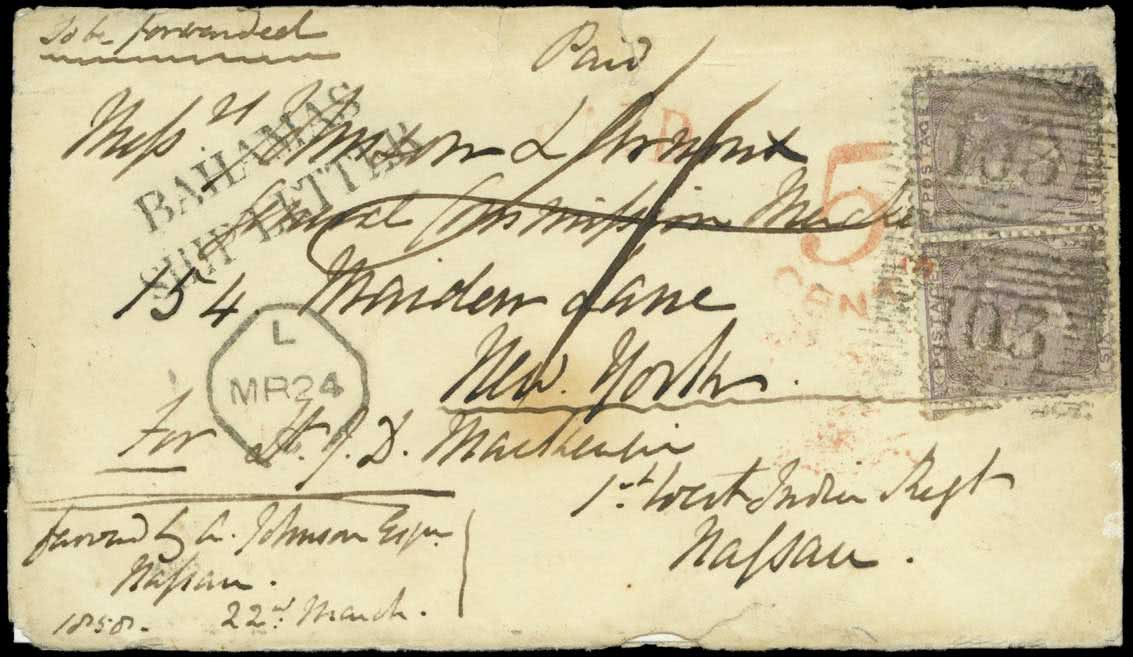 To be forwarded
Paid
BAHAMAS
SHIP LETTER
PAID
Messrs & 
5
CENTS
Commission
154 Maiden Lane
New York.
L
MR24
For Lt. J. D. Mackenzie
1st West India Regt
Nassau.
forwd by A. Johnson Esqr.
Nassau.
1858. 22nd March.
POSTAGE
SIX
POSTAGE
SIX